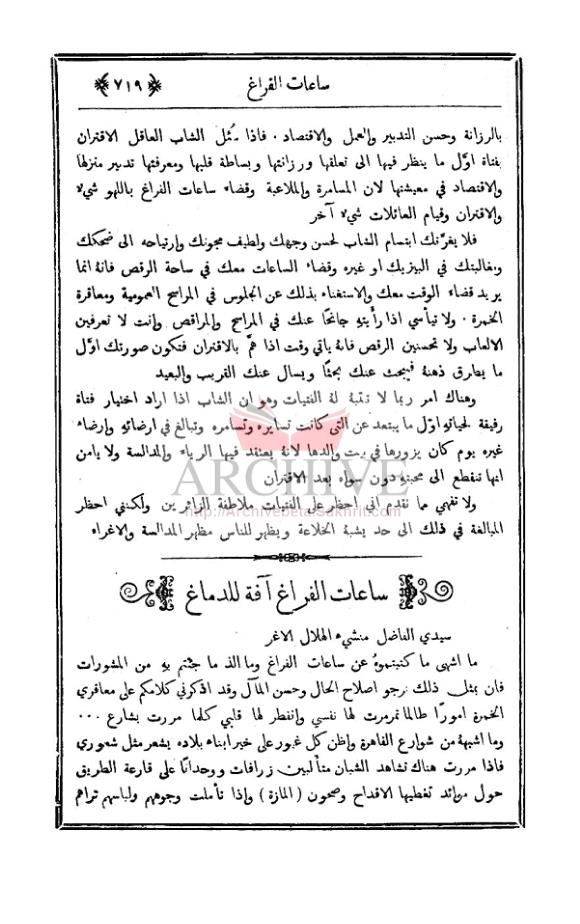 ساعات الفراغ
﴿٧١٩﴾
بالرزانة وحسن التدبير والعمل والاقتصاد . فاذا سُئل الشاب العاقل الاقتران
بفتاة اوّل ما ينظر فيها الى تعلقها ورزانتها وبساطة قلبها ومعرفتها تدبير منزلها
والاقتصاد في معيشتها لان المسامرة والملاعبة وقضاء ساعات الفراغ باللهو شيء
والاقتران وقيام العائلات شيء آخر
فلا يغرّنك ابتسام الشاب لحسن وجهك ولطيف مجونك وارتياحه الى ضحكك
ومغالبتك في البيزيك او غيره وقضاء الساعات معك في ساحة الرقص فانهُ انما
يريد قضاء الوقت معك والاستغناء بذلك عن الجلوس في المراسح العمومية ومعاقرة
الخمرة . ولا تيأسي اذا رأيتهِ جانحًا عنك في المراسح والمراقص وانت لا تعرفين
الالعاب ولا تحسنين الرقص فانهُ ياتي وقت اذا همَّ بالاقتران فتكون صورتك اوّل
ما يطارق ذهنهُ فيبحث عنك بحثًا ويسال عنك القريب والبعيد
وهناك امر ربما لا تنتبهُ لهُ الفتيات وهو ان الشاب اذا اراد اختيار فتاة
رفيقة لحياتهِ اوّل ما يبتعد عن التي كانت تسايره وتسامره وتبالغ في ارضائهِ وارضاء
غيره يوم كان يزورها في بيت والدها لانهُ يعتقد فيها الرياء والمدالسة ولا يامن
انها تنقطع الى محبتهِ دون سواه بعد الاقتران
ولا تفهمي مما تقدم اني احظر على الفتيات ملاطفة الزائرين ولكنني احظر
المبالغة في ذلك الى حد يشبهُ الخلاعة ويظهر للناس مظهر المدالسة والاغراء
ARCHIVE
http://Archivebeta.Sakhrit.com
ساعات الفراغ آفة للدماغ
سيدي الفاضل منشيء الهلال الاغر
ما اشهى ما كتبتموهُ عن ساعات الفراغ وما الذ ما جئتم بهِ من المشورات
فان بمثل ذلك نرجو اصلاح الحال وحسن المآل وقد اذكرني كلامكم على معاقري
الخمرة امورًا طالما تمرمرت لها نفسي وانفطر لها قلبي كلما مررت بشارع ...
وما اشبههُ من شوارع القاهرة واظن كل غيور على خير ابناء بلاده يشعر مثل شعوري
فاذا مررت هناك تشاهد الشبان متألبين زرافات ووحدانًا على قارعة الطريق
حول موائد تغطيها الاقداح وصحون ( المازة ) واذا تأملت وجوههم ولباسهم تراهم